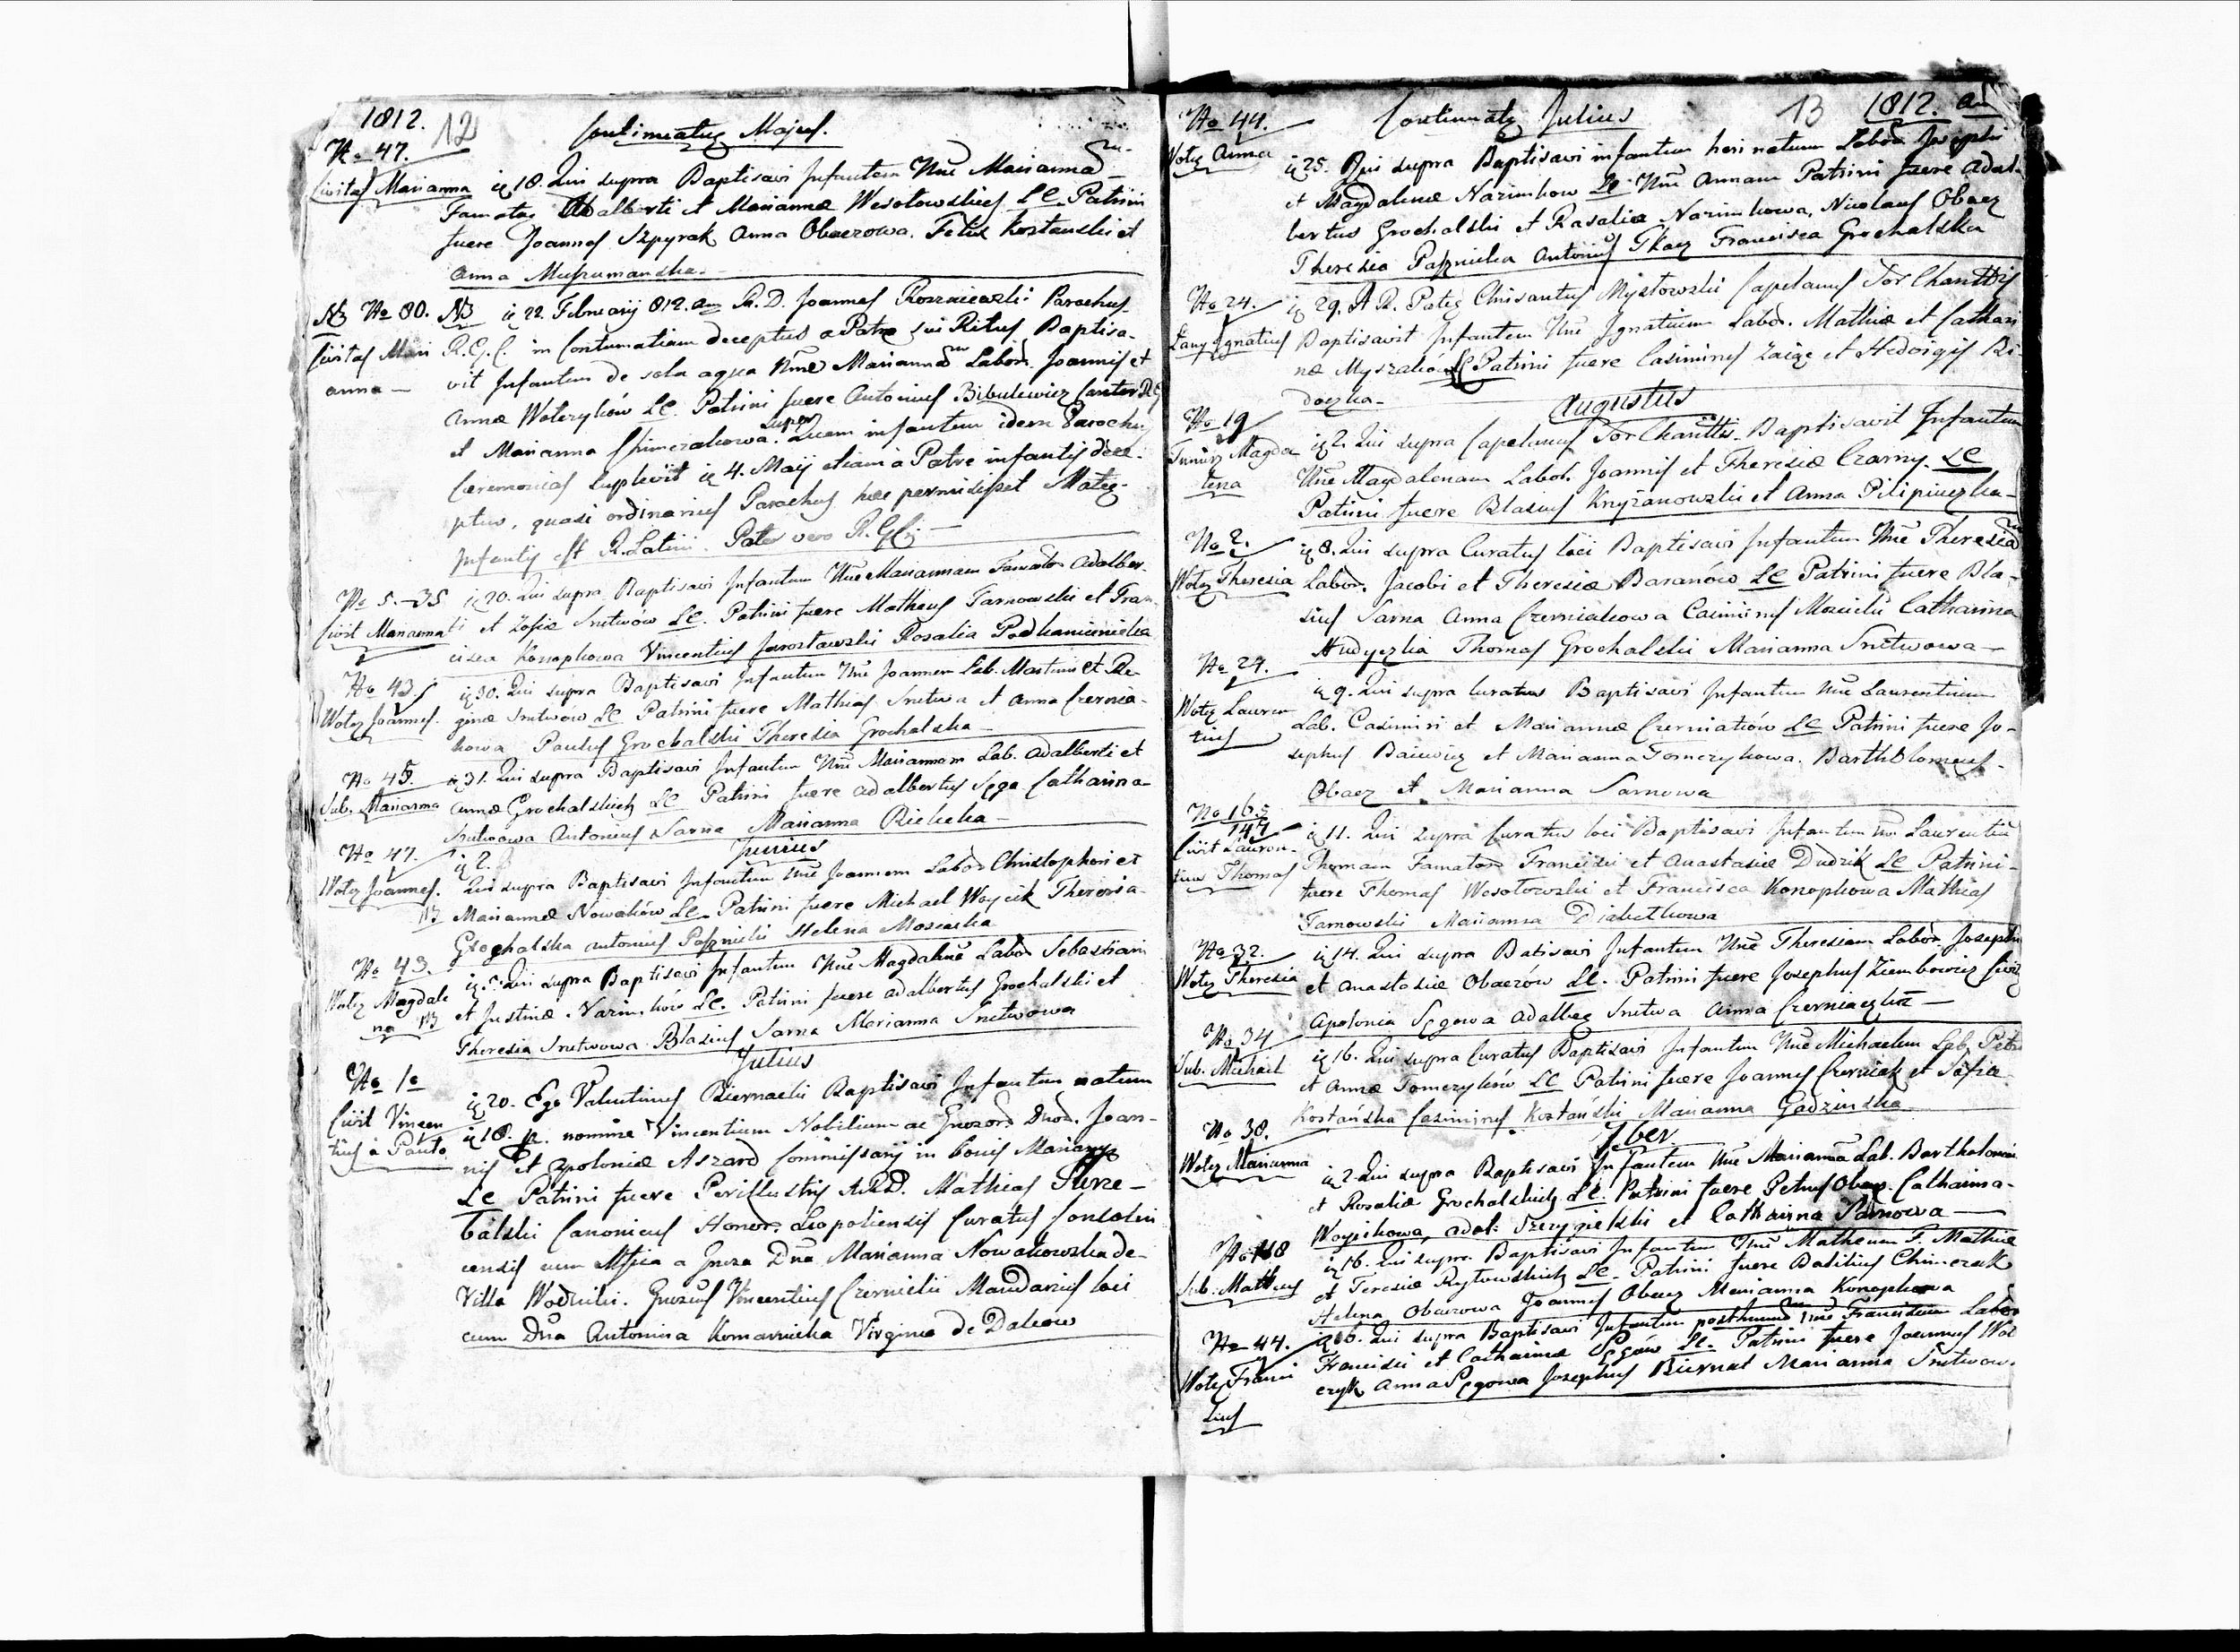 1812. 12
Continuatus Majus.
No 47.
Civitas Marianna
18. Qui supra Baptisavi Infantem Nne Mariannam
Famator Adalberti et Mariannæ Wesołowskich LC Patrini
fuere Joannes Szpyrak Anna Obaczowa. Felix Kostanski et
Anna Muszumanska.
NB No 80.
Civitas Mari
anna
NB 22. Februarij 812. an R. D. Joannes Roszniewski Parochus
R.G.C. in Contumatiam deceptus a Patre sui Ritus Baptisa-
vit Infantem de sola aqua Nne Mariannam Labor. Joannis et
Annæ Woterzyków LC. Patrini fuere Antonius Bibulewicz Cantor RG
et Marianna Chimerakowa. Quem infantem idem Parochus
super
Ceremonias suplevit 4. Maij etiam a Patre infantis dece-
ptus, quasi ordinarius Parochus hæc permisisset Mater
Infantis est R. Latini. Pater vero R. G.
No 5.-35
Civit Marianna
20. Qui supra Baptisavi Infantem Nne Mariannam Famator Adalber-
ti et Zofiæ Snitwów LC. Patrini fuere Matheus Tarnowski et Fran-
cisca Konopkowa Vincentius Jarosławski Rosalia Podkamieniecka
No 43.
Wotez Joannes.
30. Qui supra Baptisavi Infantem Nne Joannem Lab. Martini et Re-
ginæ Snitwów LC Patrini fuere Mathias Snitwa et Anna Czernia-
kowa Paulus Grochalski Theresia Grochalska
No 45.
Sub. Marianna
31. Qui supra Baptisavi Infantem Nne Mariannam Lab. Adalberti et
Annæ Grochalskich LC Patrini fuere Adalbertus Sęga Catharina
Snitwowa Antonius Sarna Marianna Richcka
Junius
No 47.
Wotez Joannes.
NB
2.
Qui supra Baptisavi Infantem Nne Joannem Labor Christophori et
Mariannæ Nowaków LC Patrini fuere Michael Woycik Theresia
Grochalska Antonius Pasznicki Helena Mosiecka
No 43.
Wotez Magdale
na NB
5. Qui supra Baptisavi Infantem Nne Magdalenæ Labor Sebastiani
et Justinæ Narimków LC. Patrini fuere Adalbertus Grochalski et
Theresia Snitwowa. Blasius Sarna Marianna Snitwowa
Julius
No 10
Civit Vincen
tius à Paulo
20. Ego Valentinus Biernacki Baptisavi Infantem natum
18. p. nomine Vincentium Nobilium ac Gnosor Dnor. Joan-
nis et Apoloniæ Aszard Commissarij in bonis Mariany
LC Patrini fuere Perillustris A.R.D. Mathias
Canonicus Honor. Leopoliensis Curatus
censis cum Mſica a Gnosa Dna Marianna Nowakowska de
Villa Wodniki. Gnosus Vincentius Czernicki Mandarius loci
cum Dna Antonina Komarnicka Virgine de Daleow
13 1812. an
Continuatus Julius
No 44.
Wotez Anna
25. Qui supra Baptisavi infantem heri natum Labor Josephi
et Magdalenæ Narimkow LC. Nne Annam Patrini fuere Adal-
bertus Grochalski et Rasalia Narimkowa, Nicolaus Obacz
Theresia Pasznicka Antonius Tkacz Francisca Grochalska
No 24.
Lany Ignatius
29. A R. Pater Chrisantus Mystowski Capelanus
Baptisavit Infantem Nne Ignatium Labor. Mathiæ et Cathari
næ Myszaków LC Patrini fuere Casimirus Zaiąc et Hedvigis Ri-
doczka.
Augustus
No 19
Magda
lena
2. Qui supra Capelanus Baptisavit Infantem
Nne Magdalenam Labor. Joannis et Theresiæ Czarny. LC
Patrini fuere Blasius Kryzanowski et Anna Pilipiuczka
No 2.
Wotez Theresia
8. Qui supra Curatus loci Baptisavi Infantem Nne Theresiam
Labor. Jacobi et Theresiæ Baranów LC Patrini fuere Bla-
sius Sarna Anna Czerniakowa Casimirus Mosicki Catharina
Hudyczka Thomas Grochalski Marianna Snitwowa
No 24.
Wotez Lauren
tius
9. Qui supra Curatus Baptisavi Infantem Nne Laurentium
Lab. Casimiri et Mariannæ Czerniaków LC Patrini fuere Jo-
sephus Baiewicz et Marianna Tomczykowa. Bartholomeus
Obacz et Marianna Sarnowa
No 165
147
Civit Lauren-
tius Thomas
11. Qui supra Curatus loci Baptisavi Infantem Nne Laurentiu
Thomam Famator Francisci et Anastasiæ Dudzik LC Patrini
fuere Thomas Wesołowski et Francisca Konopkowa Mathias
Tarnowski Marianna Diabełkowa
No 32.
Wotez Theresia
14. Qui supra Batisavi Infantem Nne Theresiam Labor Josephi
et Anastasiæ Obaczów LC. Patrini fuere Josephus Ziembowicz Civis
Apolonia Sęgowa Adalber Snitwa Anna Czerniaczka
No 34
Sub. Michael
16. Qui supra Curatus Baptisavi Infantem Nne Michaelem Lab. Petri
et Annæ Tomczyków LC Patrini fuere Joannes Czerniak et Sofia
Kostańska Casimirus Kostański Marianna Gadzinska
7ber.
No 38.
Wotez Marianna
2. Qui supra Baptisavi Infantem Nne Marianna Lab. Bartholomei
et Rosaliæ Grochalskich LC. Patrini fuere Petrus Obacz. Catharina
Woycikowa, Adal: Szczygielski et Catharina Sarnowa
No 168
Sub. Matheus
16. Qui supra Baptisavi Infantem Nne Matheum F. Mathiæ
et Teresiæ Rytowskich LC. Patrini fuere Basilius Chimerak
Helena Obaczowa Joannes Obacz Marianna Konopkowa
No 44.
Wotez Franci
scus
26. Qui supra Baptisavi Infantem posthumum Nne Franciscum Labor
Francisci et Catharinæ Sęgów LC. Patrini fuere Joannes Wol
czyk Anna Sęgowa Josephus Biernat Marianna Snitwow.